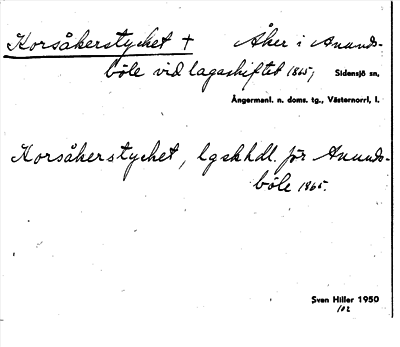 Korsåkerstycket + Åker i Anunds-
böle vid lagaskiftet 1865, Sidensjö sn,
Ångermanl. n. doms. tg., Västernorrl, l.
Korsåkerstycket, lgskhdl. för Anunds-
böle 1865.
Sven Hiller 1950
102